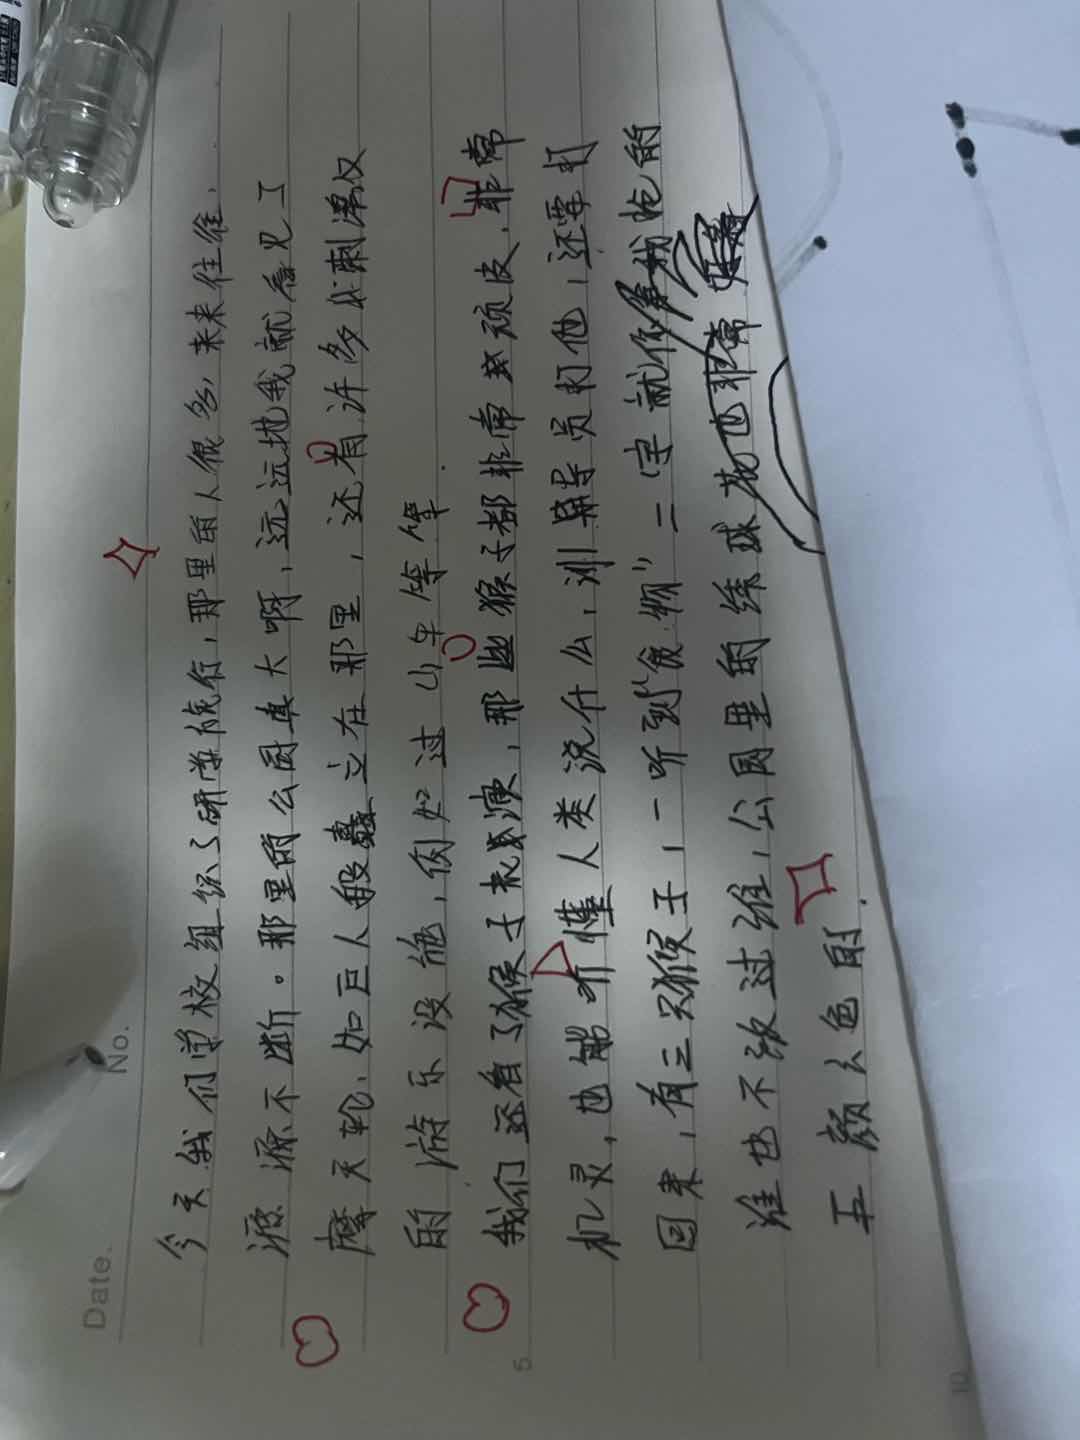 Date. No.
今天我们学校组织了研学旅行，那里的人很多，来来往往，
源源不断。那里的公园真大啊，远远地我就看见了
摩天轮，如巨人般矗立在那里，还有许多刺激
的游乐设施，例如过山车等等.
我们还看了猴子表演，那些猴子都非常顽皮，非常
机灵，也能听懂人类说什么，训导员打他，还要打
回来，有三只猴子，一听到“食物”二字就你我抢的
谁也不放过谁，公园里的绣球花也非常
五颜六色的.
5
10